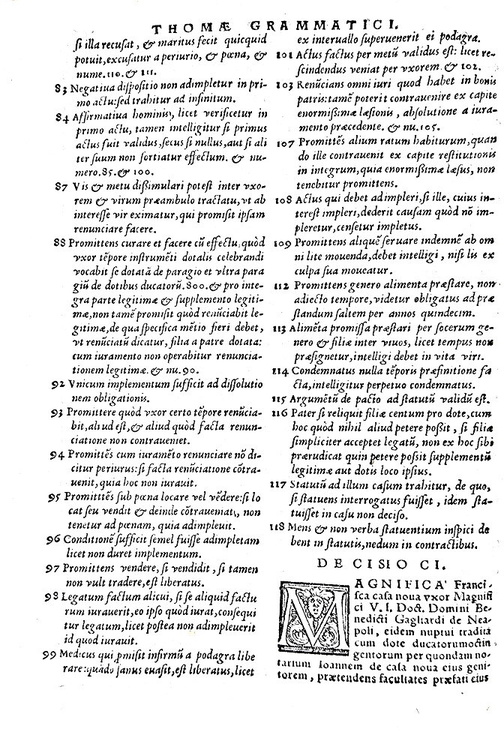 THOMÆ GRAMMATICI.
si illa recusat, & maritus fecit quicquid
potuit, excusatur a periurio, & pœna, &
nume. 110. & 111.
83 Negatiua dispositio non adimpletur in pri
mo actu: sed trahitur ad infinitum.
84 Affirmatiua hominis, licet verificetur in
primo actu, tamen intelligitur si primus
actus suit validus, secus si nullus, aut si ali
ter suum non sortiatur effectum. & nu-
mero. 85. & 100.
87 Vis & metu dissimulari potest inter vxo-
rem & virum præambulo tractatu, vt ab
interesse vir eximatur, qui promisit ipsam
renunciare facere.
88 Promittens curare et facere cũ effectu, quòd
vxor tẽpore instrumẽti dotalis celebrandi
vocabit se dotatã de paragio et vltra para
giũ de dotibus ducatorũ. 800. & pro inte-
gra parte legitimæ & supplemento legiti-
mæ, non tamẽ promisit quòd renũciabit le-
gitimæ, de qua specifica mẽtio fieri debet,
vt renũciatũ dicatur, filia a patre dotata:
cum iuramento non operabitur renuncia-
tionem legitimæ. & nu. 90.
92 Vnicum implementum sufficit ad dissolutio
nem obligationis.
93 Promittere quòd vxor certo tẽpore renũcia-
bit, aliud est, & aliud quòd facta renun-
ciatione non contraueniet.
94 Promittẽs cum iuramẽto renunciare nõ di-
citur periurus: si facta renũciatione cõtra-
uenit, quia hoc non iurauit.
95 Promittẽs sub pœna locare vel vẽdere: si lo
cat seu vendit & deinde cõtrauenit, non
tenetur ad pœnam, quia adimpleuit.
96 Conditionẽ sufficit semel fuisse adimpletam
licet non duret implementum.
97 Promittens vendere, si vendidit, si tamen
non vult tradere, est liberatus.
98 Legatum factum alicui, si se aliquid factu
rum iurauerit, eo ipso quòd iurat, consequi
tur legatum, licet postea non adimpleuerit
id quod iurauit.
99 Medicus qui ꝓmisit infirmũ a podagra libe
rare: quãdo sanus euasit, est liberatus, licet
ex interuallo superuenerit ei podagra.
101 Actus factus per metũ validus est: licet re-
scindendus veniat per vxorem. & 102.
103 Renũcians omni iuri quod habet in bonis
patris: tamẽ poterit contrauenire ex capite
enormissimæ læsionis, absolutione a iura-
mento præcedente. & nu. 105.
107 Promittẽs alium ratum habiturum, quan
do ille contrauenit ex capite restitutionis
in integrum, quia enormissimæ læsus, non
tenebitur promittens.
108 Actus qui debet adimpleri, si ille, cuius in-
terest impleri, dederit causam quòd nõ im-
pleretur, censetur impletus.
109 Promittens aliquẽ seruare indemnẽ ab om
ni lite mouenda, debet intelligi, nisi lis ex
culpa sua moueatur.
112 Promittens genero alimenta præstare, non
adiecto tempore, videtur obligatus ad præ
standum saltem per annos quindecim.
113 Alimẽta promissa præstari per socerum ge-
nero & filiæ inter viuos, licet tempus non
præsignetur, intelligi debet in vita viri.
114 Condemnatus nulla tẽporis præfinitione fa
cta, intelligitur perpetuo condemnatus.
115 Argumẽtũ de pacto ad statutũ validũ est.
116 Pater si reliquit filiæ centum pro dote, cum
hoc quòd nihil aliud petere possit, si filia
simpliciter acceptet legatũ, non ex hoc sibi
præiudicat quin petere possit supplementũ
legitimæ aut dotis loco ipsius.
117 Statutũ ad illum casum trahitur, de quo,
si statuens interrogatus fuisset, idem sta-
tuisset in casu non deciso.
118 Mens & non verba statuentium inspici de
bent in statutis, nedum in contractibus.
DECISIO CI.
MAGNIFICA Franci-
sca casa noua vxor Magnifi
ci V. I. Doct. Domini Be-
nedicti Gagliardi de Nea-
poli, eidem nuptui tradita
cum dote ducatorum octin
gentorum per quondam no-
tarium Ioannem de casa noua eius geni-
torem, prætendens facultates præfati eius